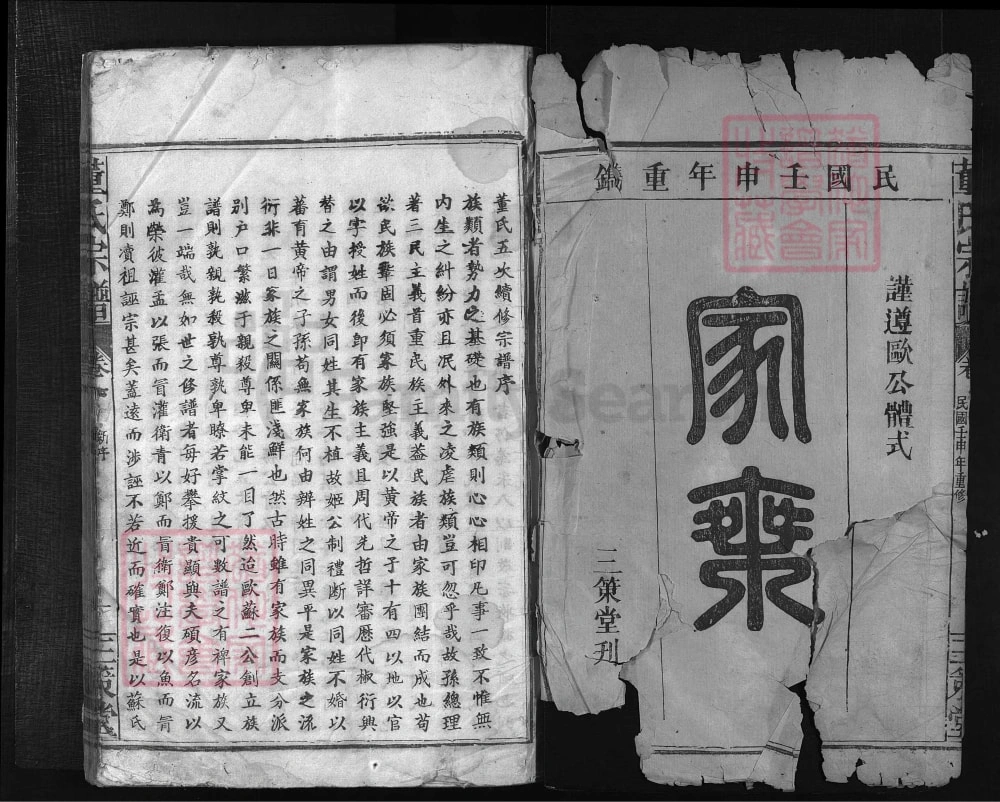 民國壬申年重鐫
謹遵歐公體式
家乘
三策堂刋
民國壬申年重修
董氏五次續修宗譜序
族類者勢力之基礎也有族類則心心相印凡事一致不惟無
內生之糾紛亦且泯外來之凌虐族類豈可忽乎哉故孫總理
著三民主義首重民族主義葢民族者由家族團結而成也苟
欲民族鞏固必須家族堅強是以黃帝之子十有四以地以官
以字授姓而後卽有家族主義且周代先哲詳審歷代椒衍興
替之由謂男女同姓其生不植故姬公制禮斷以同姓不婚以
蕃育黃帝之子孫苟無家族何由辨姓之同異乎是家族之流
衍非一日家族之關係匪淺鮮也然古時雖有家族而支分派
別戶口繁滋于親殺尊卑未能一目了然迨歐蘇二公創立族
譜則孰親孰殺孰尊孰卑瞭若掌紋之可數譜之有裨家族又
豈一端哉無如世之修譜者每好攀援貴顯與夫碩彥名流以
為榮彼灌孟以張而冒灌衛青以鄭而冒衛鄭注復以魚而冒
鄭則瀆祖誣宗甚矣葢遠而涉誣不若近而確實也是以蘇氏
董氏宗譜
卷
三策堂